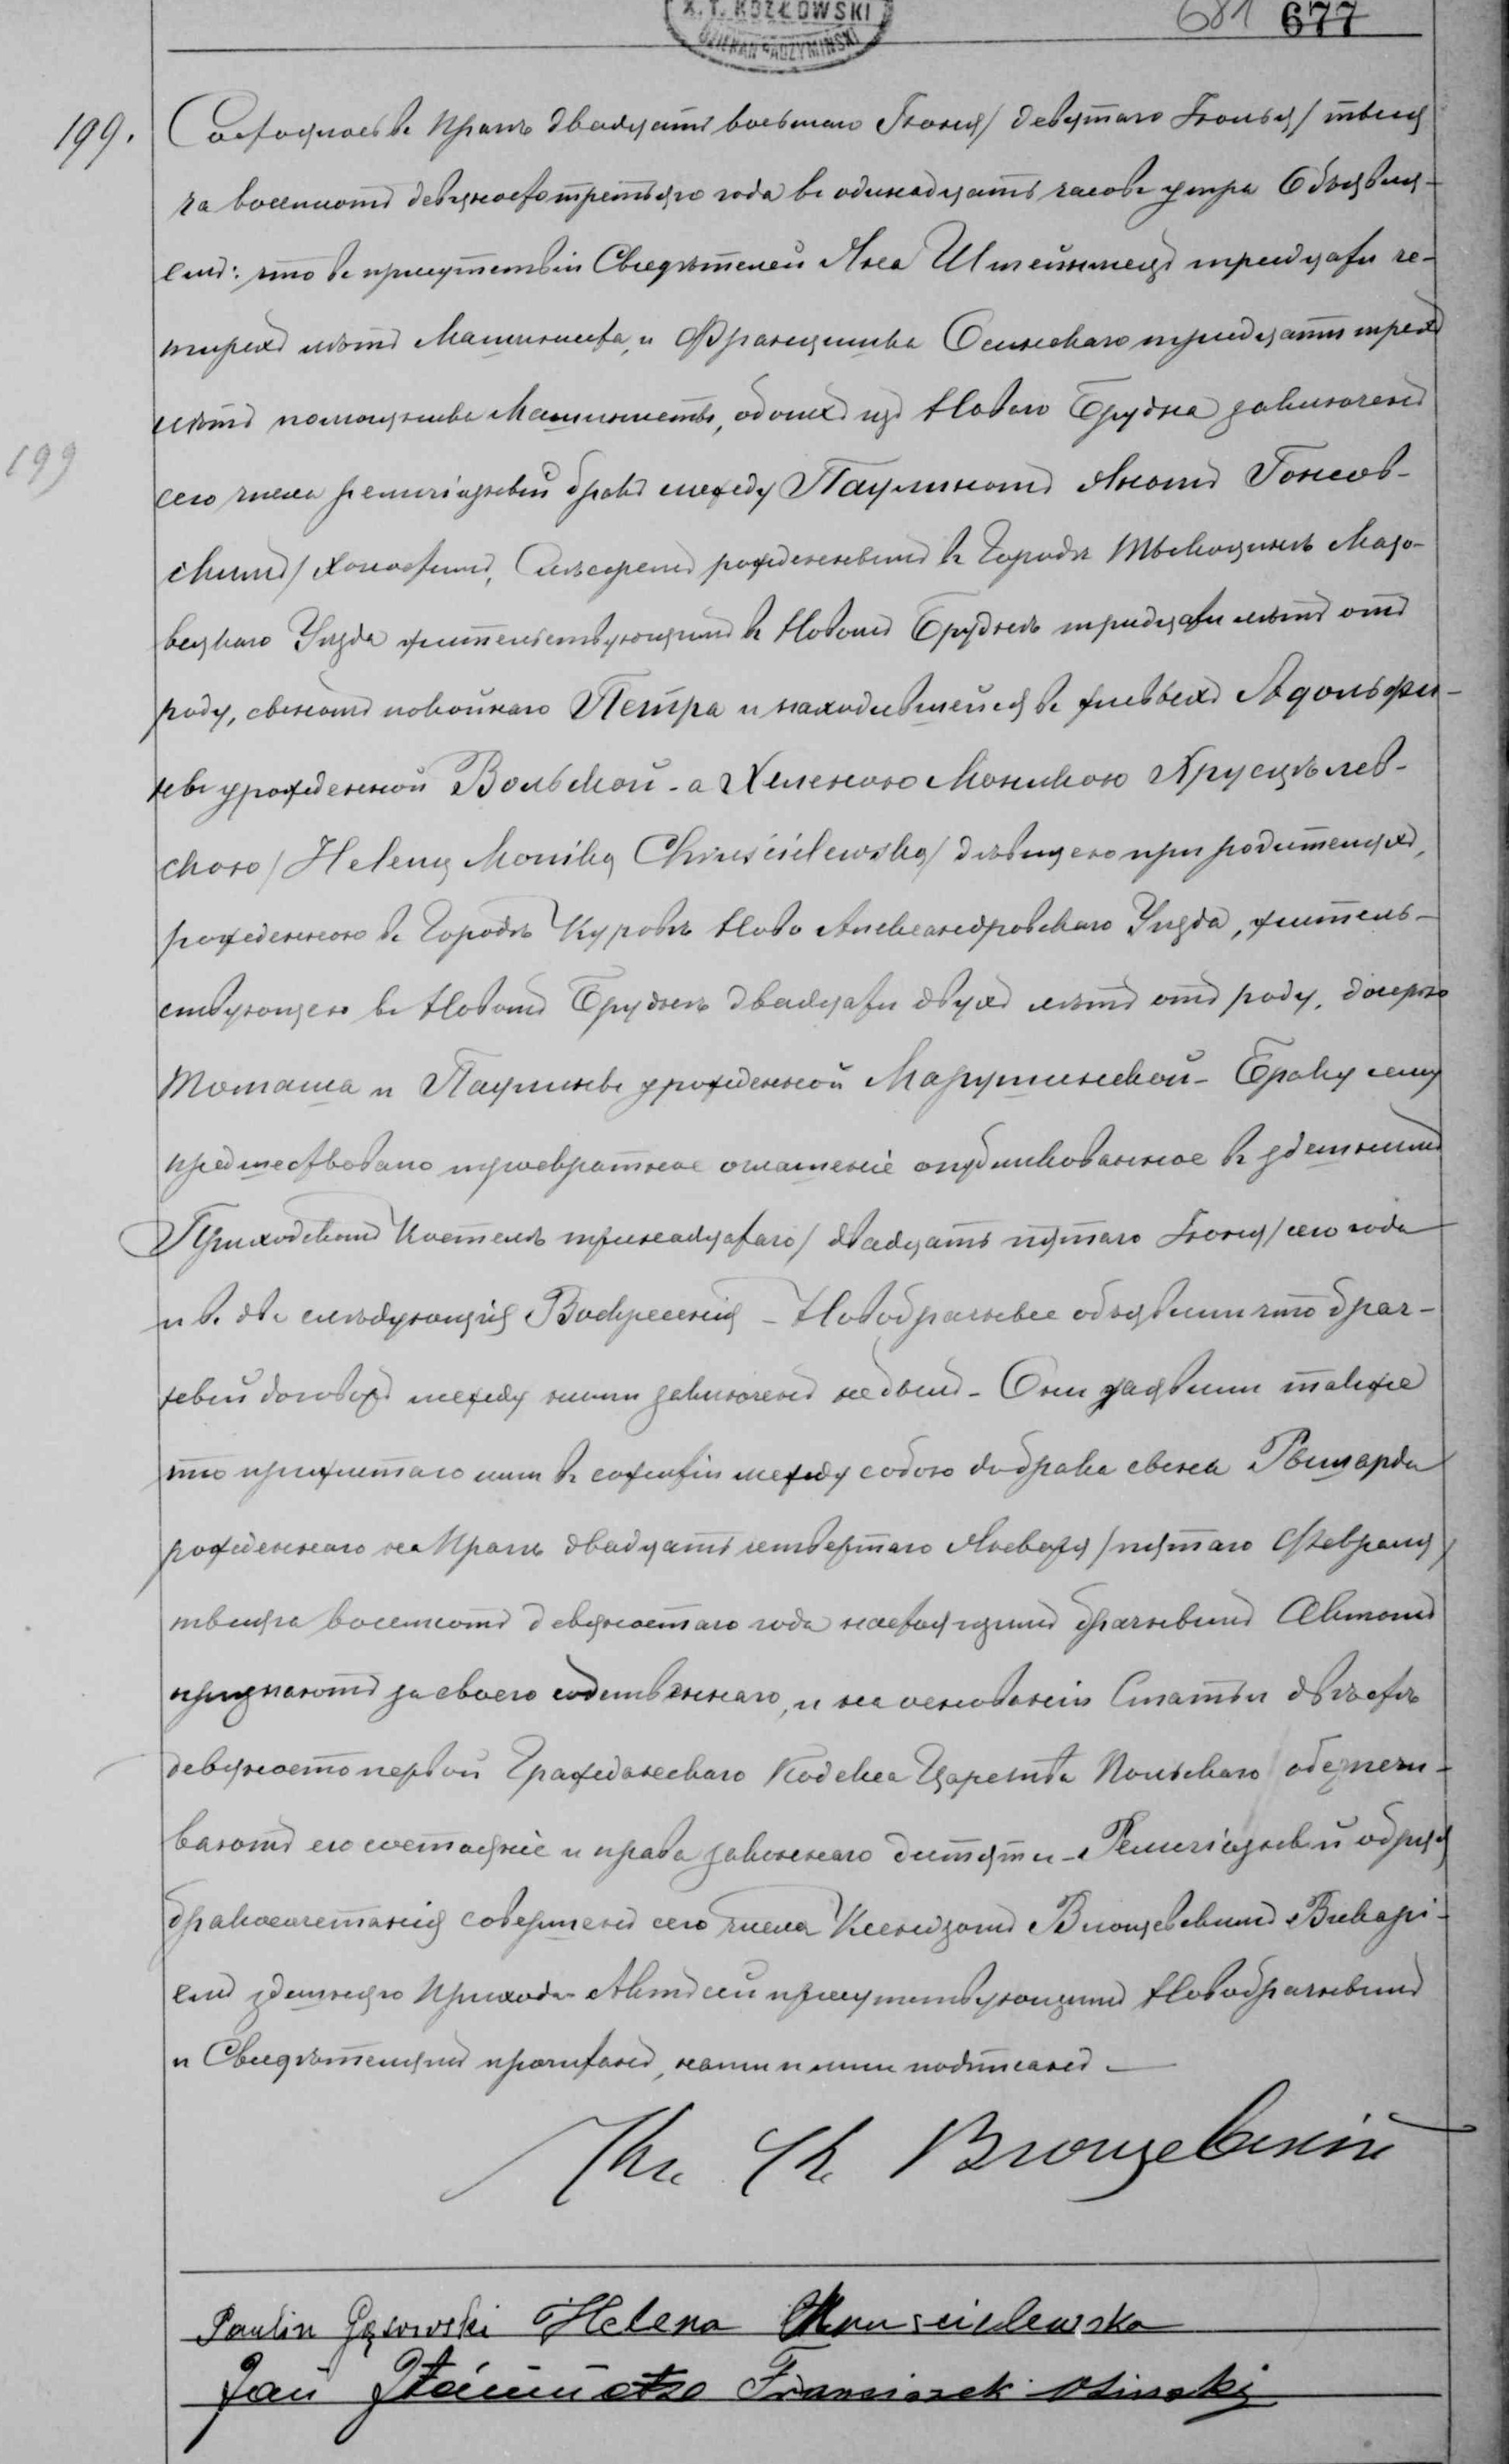 X. T. KOZŁOWSKI
DZIEKAN RADZYMIŃSKI
681 677
199. Состоялось въ Прагѣ двадцать восьмаго Іюня / девятаго Іюля / тысяча
восемсотъ девяностотретьяго года въ одинадцать часовъ утра Объявля-
емъ: что въ присутствіи Свидѣтелей Яна Штейнмецъ тридцати че-
тырехъ лѣтъ Машиниста, и Францишка Осинскаго тридцати трехъ
лѣтъ помощника Машиниста, обоихъ изъ Новаго Брудна заключенъ
199
сего числа религіозный бракъ между Паулиномъ Яномъ Гонсов-
скимъ / холостымъ, Слесаремъ рожденнымъ въ Городѣ Тыкоцинѣ Мазо-
вецкаго Уѣзда жительствующимъ въ Новомъ Бруднѣ тридцати лѣтъ отъ
роду, сыномъ покойнаго Петра и находившейся въ живыхъ Адольфи-
ны урожденной Вольской - а Хеленою Моникою Хрусцѣлев-
скою / Heleną Moniką Chruścielewską / дѣвицею при родителяхъ,
рожденною въ Городѣ Куровѣ Ново Александровскаго Уѣзда, житель-
ствующею въ Новомъ Бруднѣ двадцати двухъ лѣтъ отъ роду, дочерью
Томаша и Паулины урожденной Марушинской - Браку сему
предшествовало троекратное оглашеніе опубликованное въ здѣшнемъ
Приходскомъ Костелѣ тринадцатаго / двадцать пятаго Іюня / сего года
и въ два слѣдующія Воскресенія - Новобрачные объявили что брач-
ный договоръ между ними заключенъ не былъ - Они заявили также
что прижитаго ими въ сожитіи между собою до брака сына Рышарда
рожденнаго на Прагѣ двадцать четвертаго Января / пятаго Февраля /
тысяча восемсотъ девяностаго года настоящимъ брачнымъ Актомъ
признаютъ за своего собственнаго, и на основаніи Статьи двѣсти
девяносто первой Гражданскаго Кодекса Царства Польскаго обезпечи-
ваютъ его состояніе и права законнаго дитяти - Религіозный обрядъ
бракосочетанія совершенъ сего числа Ксендзомъ Вионцевскимъ Викарі-
емъ здѣшняго Прихода - Актъ сей присутствующимъ Новобрачнымъ
и Свидѣтелямъ прочитанъ, нами и ими подписанъ. -
Кс. Вионцевскій
Paulin Gąsowski Helena Chruścielewska
Jan Franciszek Osinski